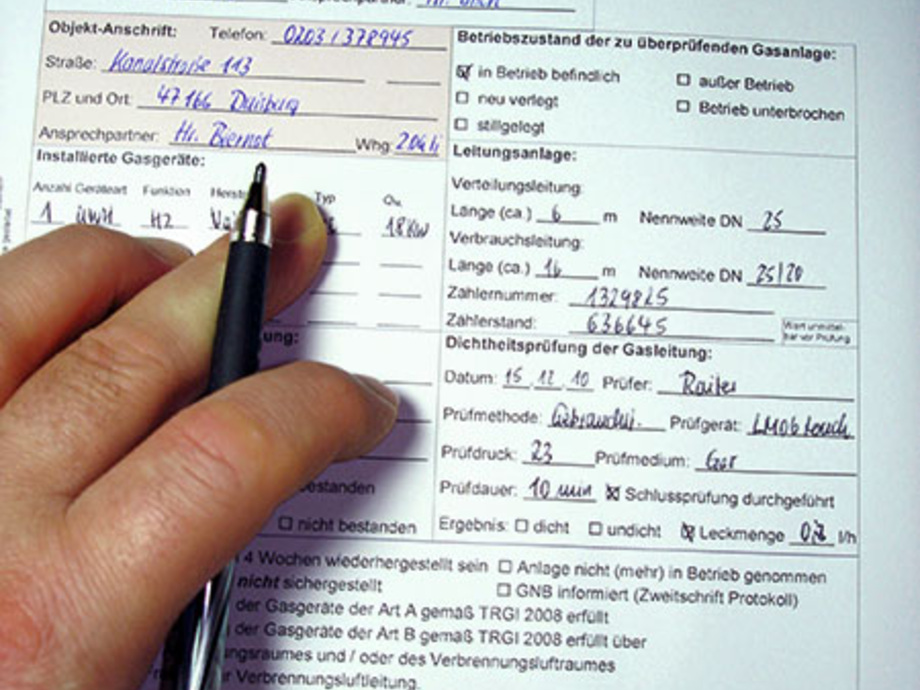 Objekt-Anschrift: Telefon: 0203 / 378945
Straße: Kanalstraße 113
PLZ und Ort: 47166 Duisburg
Ansprechpartner: Hr. Biernat Whg:
Installierte Gasgeräte:
Anzahl Geräteart Funktion Herst Typ
1 H2 18 KW
ung:
estanden
nicht bestanden
Betriebszustand der zu überprüfenden Gasanlage:
in Betrieb befindlich außer Betrieb
neu verlegt Betrieb unterbrochen
stillgelegt
Leitungsanlage:
Verteilungsleitung:
Länge (ca.) 6 m Nennweite DN 25
Verbrauchsleitung:
Länge (ca.) 16 m Nennweite DN 25/20
Zählernummer: 1329825
Zählerstand: 636645
Dichtheitsprüfung der Gasleitung:
Datum: 15.12.10 Prüfer:
Prüfmethode: Gebrauchsf. Prüfgerät: LMOb touch
Prüfdruck: 23 Prüfmedium: Gas
Prüfdauer: 10 min Schlussprüfung durchgeführt
Ergebnis: dicht undicht Leckmenge l/h
4 Wochen wiederhergestellt sein Anlage nicht (mehr) in Betrieb genommen
nicht sichergestellt GNB informiert (Zweitschrift Protokoll)
der Gasgeräte der Art A gemäß TRGI 2008 erfüllt
der Gasgeräte der Art B gemäß TRGI 2008 erfüllt über
ngsraumes und / oder des Verbrennungsluftraumes
r Verbrennungsluftleitung.